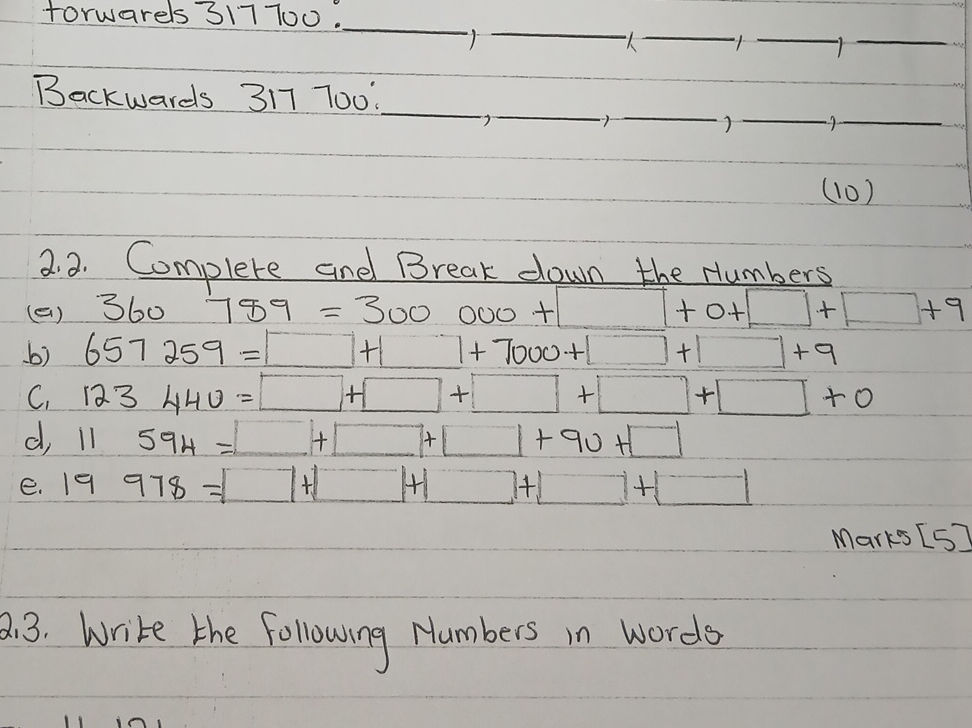 forwards 317 700: , , , ,
Backwards 317 700: , , , ,
(10)
2.2. Complete and Break down the Numbers
(a) 360 789 = 300 000 + + 0 + + + 9
b) 657 259 = + + 7000 + + + 9
c, 123 440 = + + + + + 0
d, 11 594 = + + + 90 +
e. 19 978 = + + + +
Marks [5]
2.3. Write the following Numbers in Words